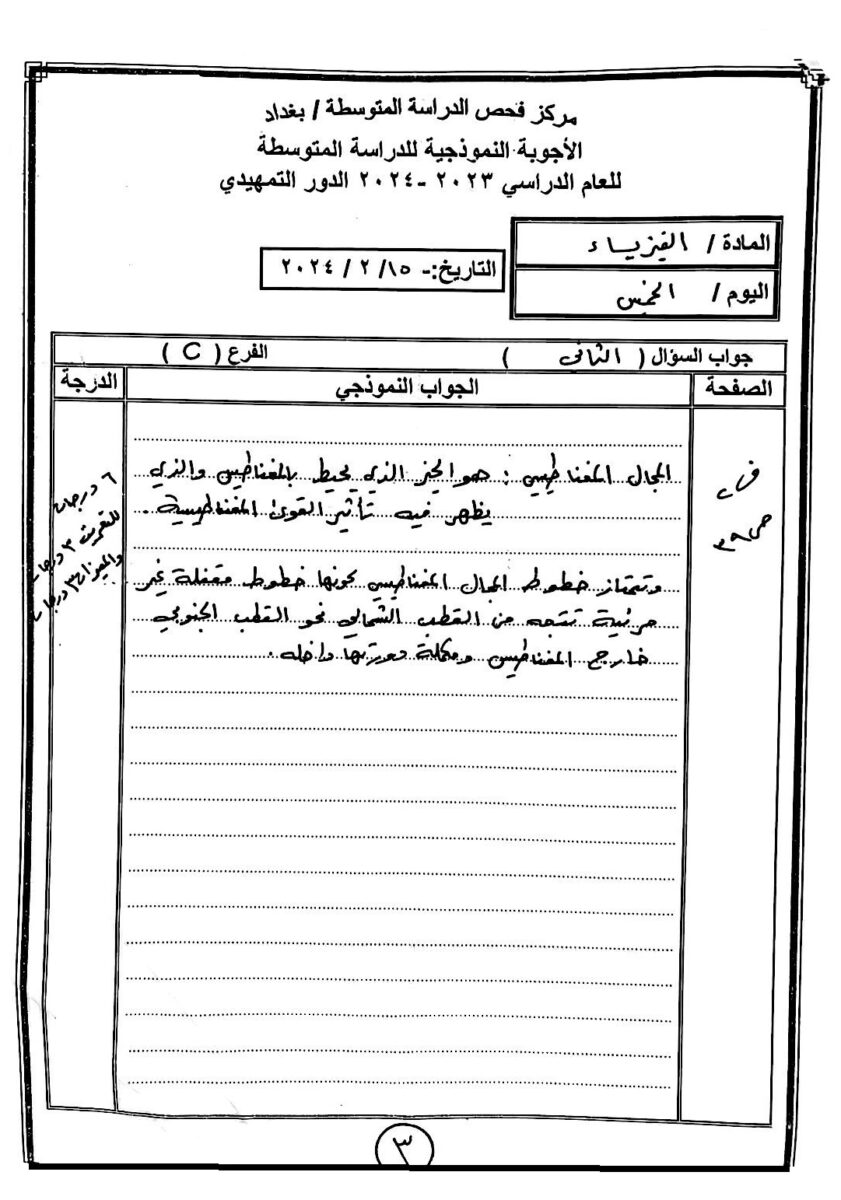 مركز فحص الدراسة المتوسطة / بغداد
الأجوبة النموذجية للدراسة المتوسطة
للعام الدراسي ٢٠٢٣ - ٢٠٢٤ الدور التمهيدي
المادة / الفيزياء
اليوم / الخميس
التاريخ:- ١٥/ ٢ / ٢٠٢٤
جواب السؤال ( الثاني ) الفرع ( C )
الصفحة الجواب النموذجي الدرجة
المجال المغناطيسي : هو الحيز الذي يحيط بالمغناطيس والذي
يظهر فيه تأثير القوى المغناطيسية .
وتمتاز خطوط المجال المغناطيسي بكونها خطوط مقفلة غير
مرئية تتجه من القطب الشمالي نحو القطب الجنوبي
خارج المغناطيس ومكملة دورتها داخله .
ص ٣٩
٦ درجات
للتعريف ٣ درجات
والميزات ٣ درجات
٣